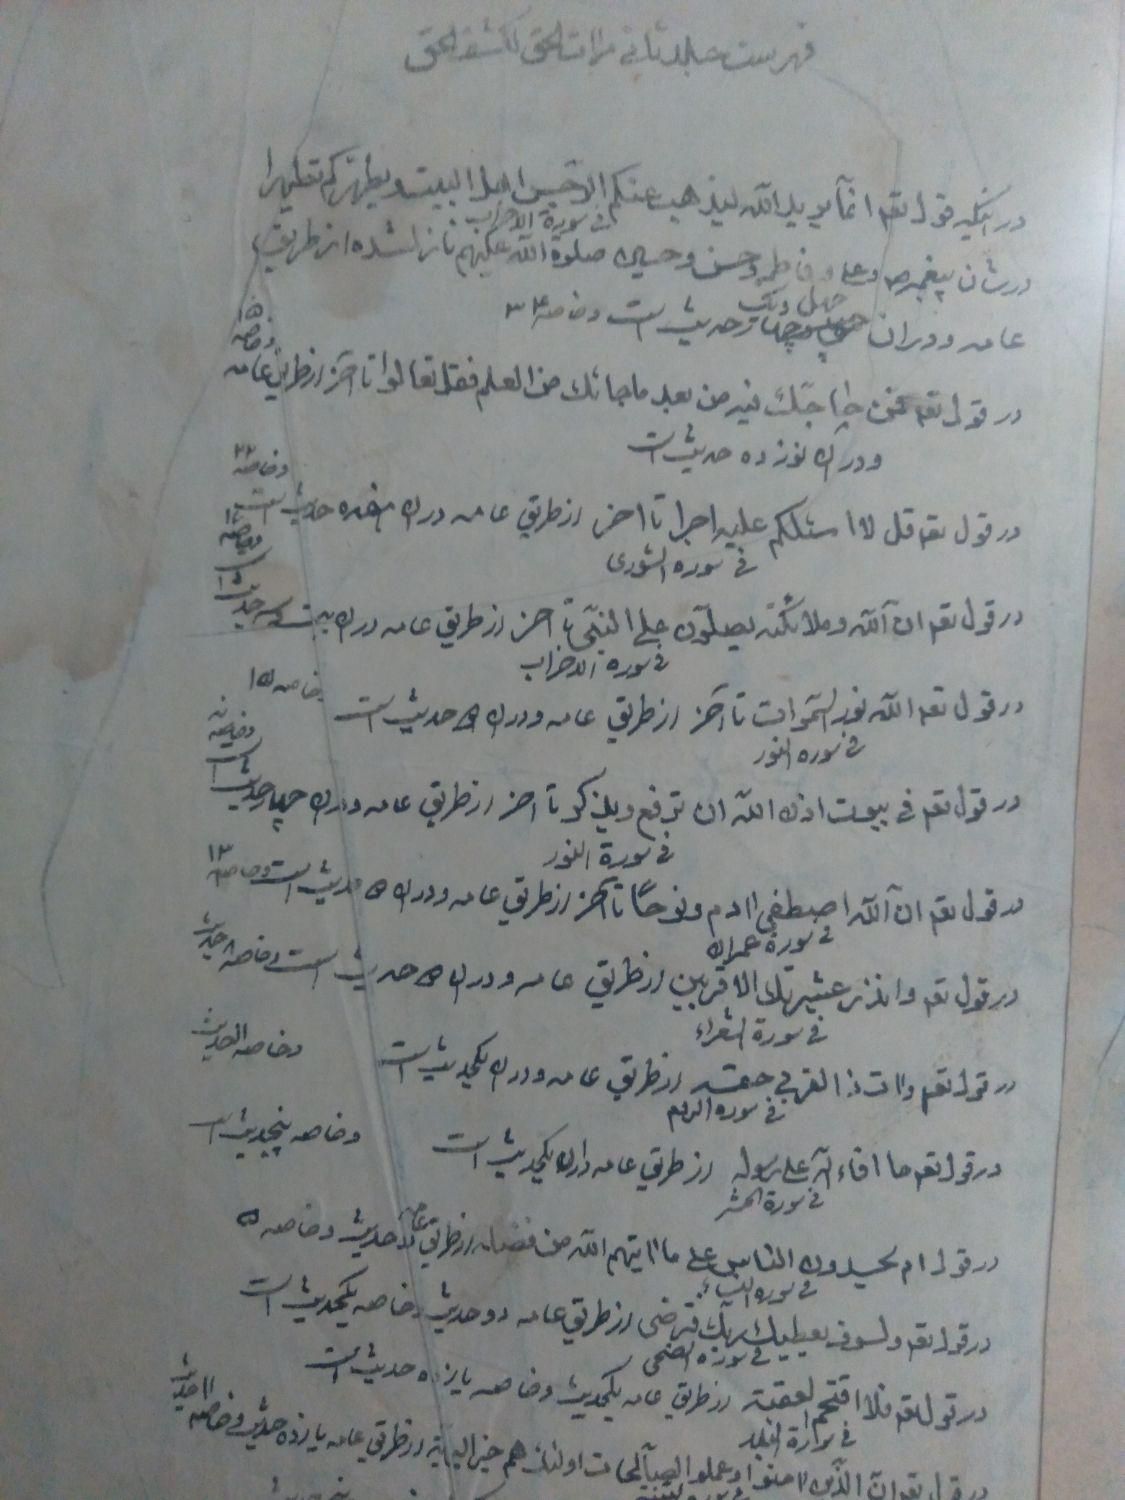 فهرست جلد ثانی مرات الحق لکشف الحق
در اینکه قول تعـ انمآ یرید الله لیذهب عنکم الرجس اهل البیت و یطهرکم تطهیرا
فی سورة الاحزاب
در شان پیغمبر ص و علی و فاطمه و حسن و حسین صلوة الله علیهم نازل شده از طریق
عامه و در ان چهل و یک حدیث است و خاصه ۳۴
در قول تعـ فمن حاجک فیه من بعد ما جائک من العلم فقل تعالوا تا آخر از طریق عامه
و در ان نوزده حدیث است و خاصه ۱۵
در قول تعـ قل لا اسئلکم علیه اجرا تا اخر از طریق عامه در ان هفده حدیث است
و خاصه ۲۲
فی سوره الشوری
در قول تعـ ان الله و ملائکته یصلون علی النبی تا اخر از طریق عامه در ان
فی سوره الاحزاب
در قول تعـ الله نور السموات تا آخر از طریق عامه و در ان حدیث است
خاصه ۱۵
فی سوره النور
در قول تعـ فی بیوت اذن الله ان ترفع و یذکر تا اخر از طریق عامه و در ان چهار حدیث است
فی سورة النور
در قول تعـ ان الله اصطفی ادم و نوحا تا آخر از طریق عامه و در ان حدیث است و خاصه ۱۳
فی سورة عمران
در قول تعـ و انذر عشیرتک الاقربین از طریق عامه و در ان حدیث است و خاصه ۸ حدیث
فی سورة الشعراء
در قول تعـ و ات ذا القربی حقه از طریق عامه و در ان یکحدیث است
فی سوره الروم
در قول تعـ ما افاء الله علی رسوله از طریق عامه در ان یکحدیث است و خاصه پنجحدیث است
فی سورة الحشر
در قول ام یحسدون الناس علی ما اتیهم الله من فضله از طریق عامه حدیث و خاصه ۵
فی سوره النساء
در قول تعـ و لسوف یعطیک ربک فترضی از طریق عامه دو حدیث و خاصه یکحدیث است
فی سورة الضحی
در قول تعـ فلا اقتحم العقبة از طریق عامه یکحدیث و خاصه یازده حدیث است
فی سورة البلد
در قول تعـ ان الذین امنوا و عملوا الصالحات اولئک هم خیر البریة از طریق عامه یازده حدیث و خاصه ۱۱ حدیث